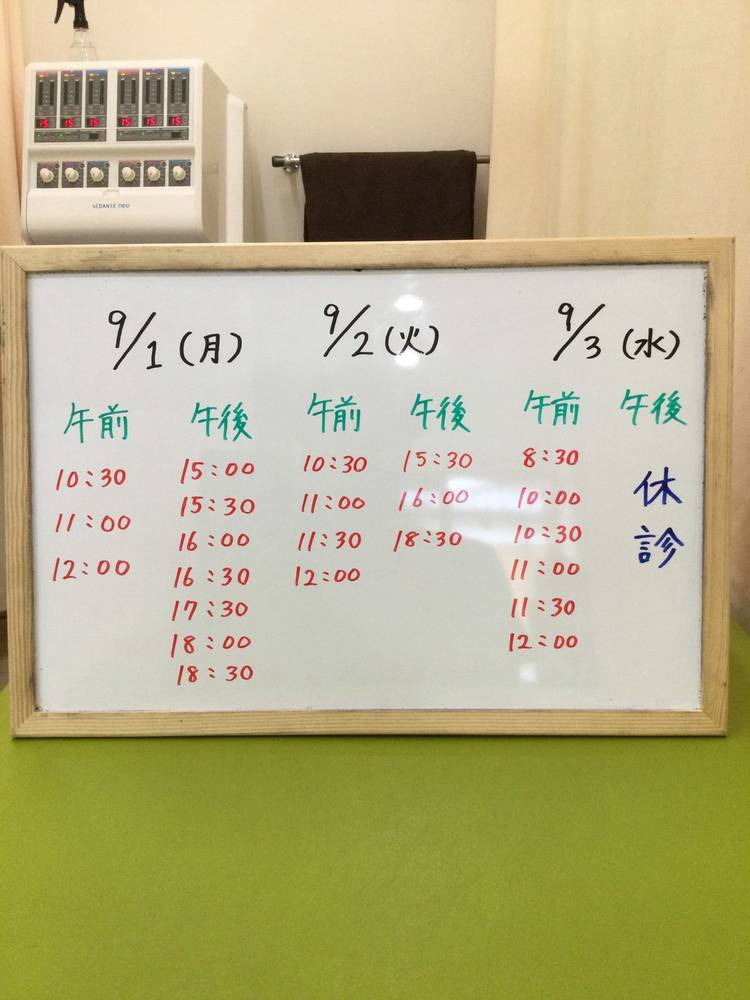 SEDANTE neo
9/1(月)
午前
10:30
11:00
12:00
午後
15:00
15:30
16:00
16:30
17:30
18:00
18:30
9/2(火)
午前
10:30
11:00
11:30
12:00
午後
15:30
16:00
18:30
9/3(水)
午前
8:30
10:00
10:30
11:00
11:30
12:00
午後
休診